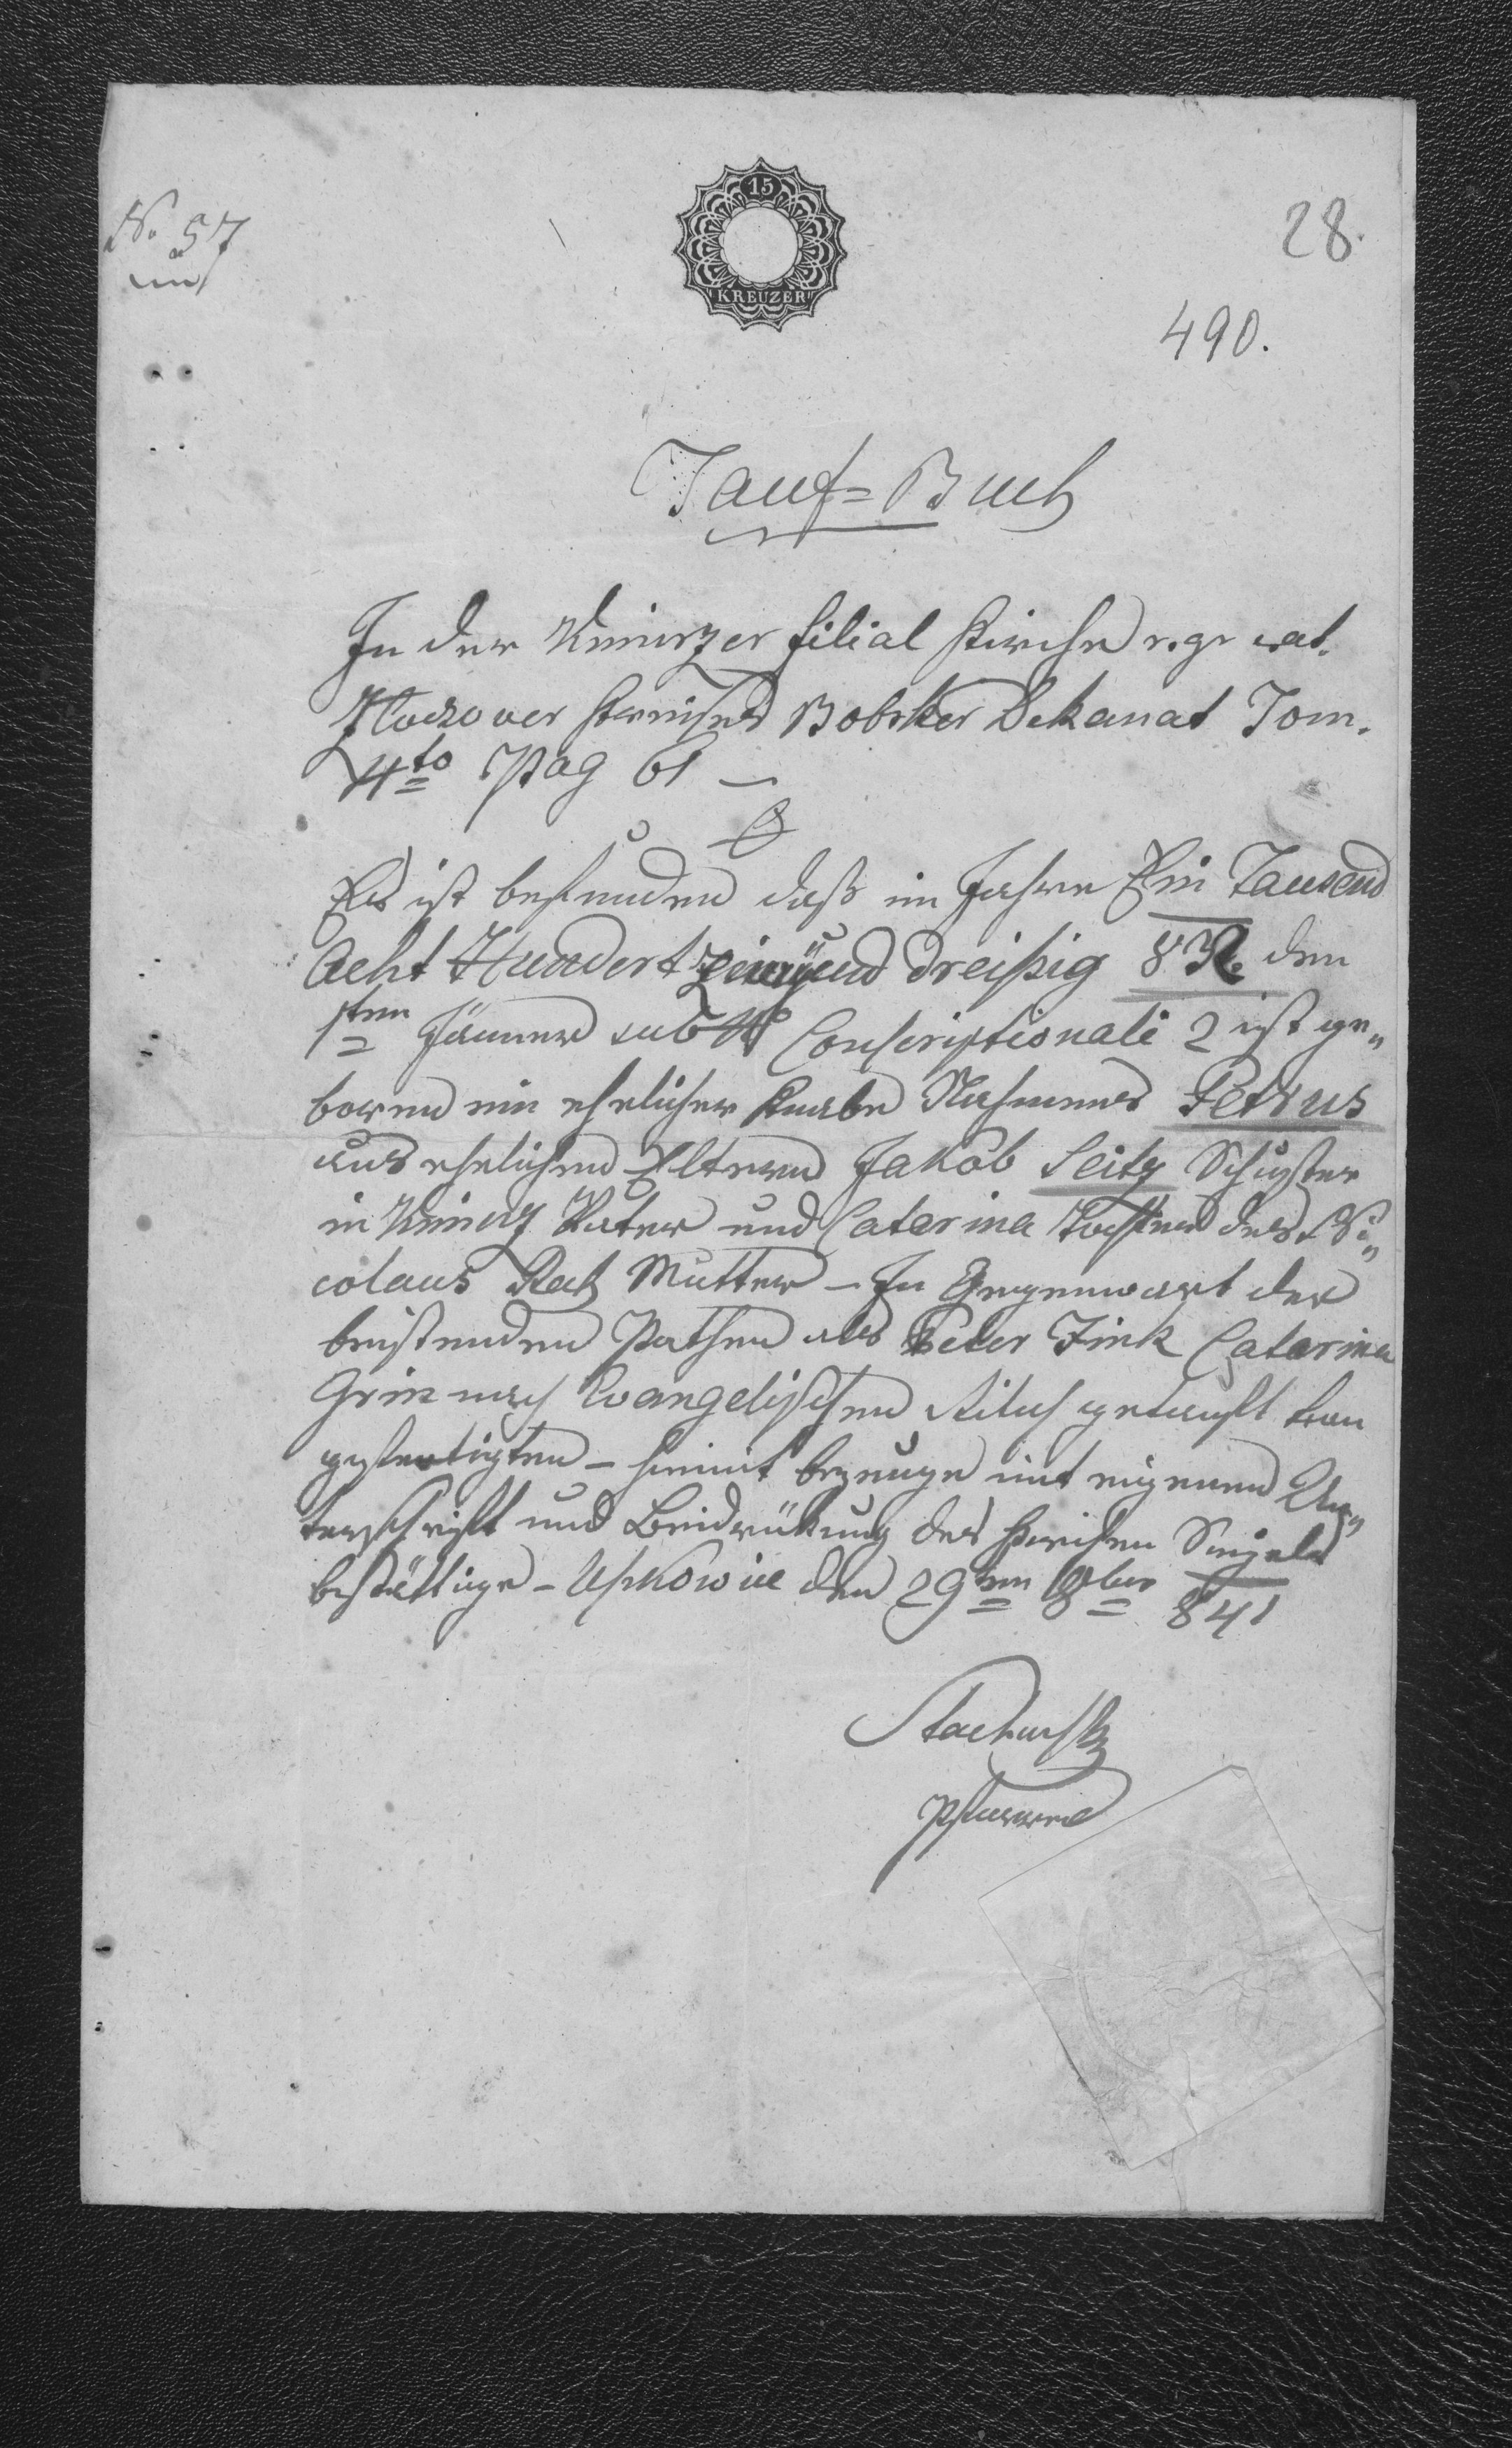 No. 57
15
KREUZER
28.
490.
Tauf=Buch
In der Kimirzer filial Kirche r. gr. cat.
Zloczover Kreises Bobrker Dekanat Tom.
4to Pag 61 –
Es ist befunden daß im Jahre Ein Tausend
Acht Hundert zwei und dreißig 832 den
1ten Jänner sub No Conscriptionali 2 ist ge„
boren ein ehelicher Knabe Nahmens Petrus
aus ehelichen Eltern Jakob Seitz Schuster
in Kimirz Vater und Caterina Tochter des Ni„
colaus Mutter – In Gegenwart der
beistenden Pathen als Peter Fink Catarina
Grin nach Evangelischen Ritus getauft von
gefertigten – hiemit bezeuge mit eigenen Un„
terschrift und Beidrükung des Kirchen Sigels
bestättige – Uszkowice den 29ten 8ber 841
Pfarrer